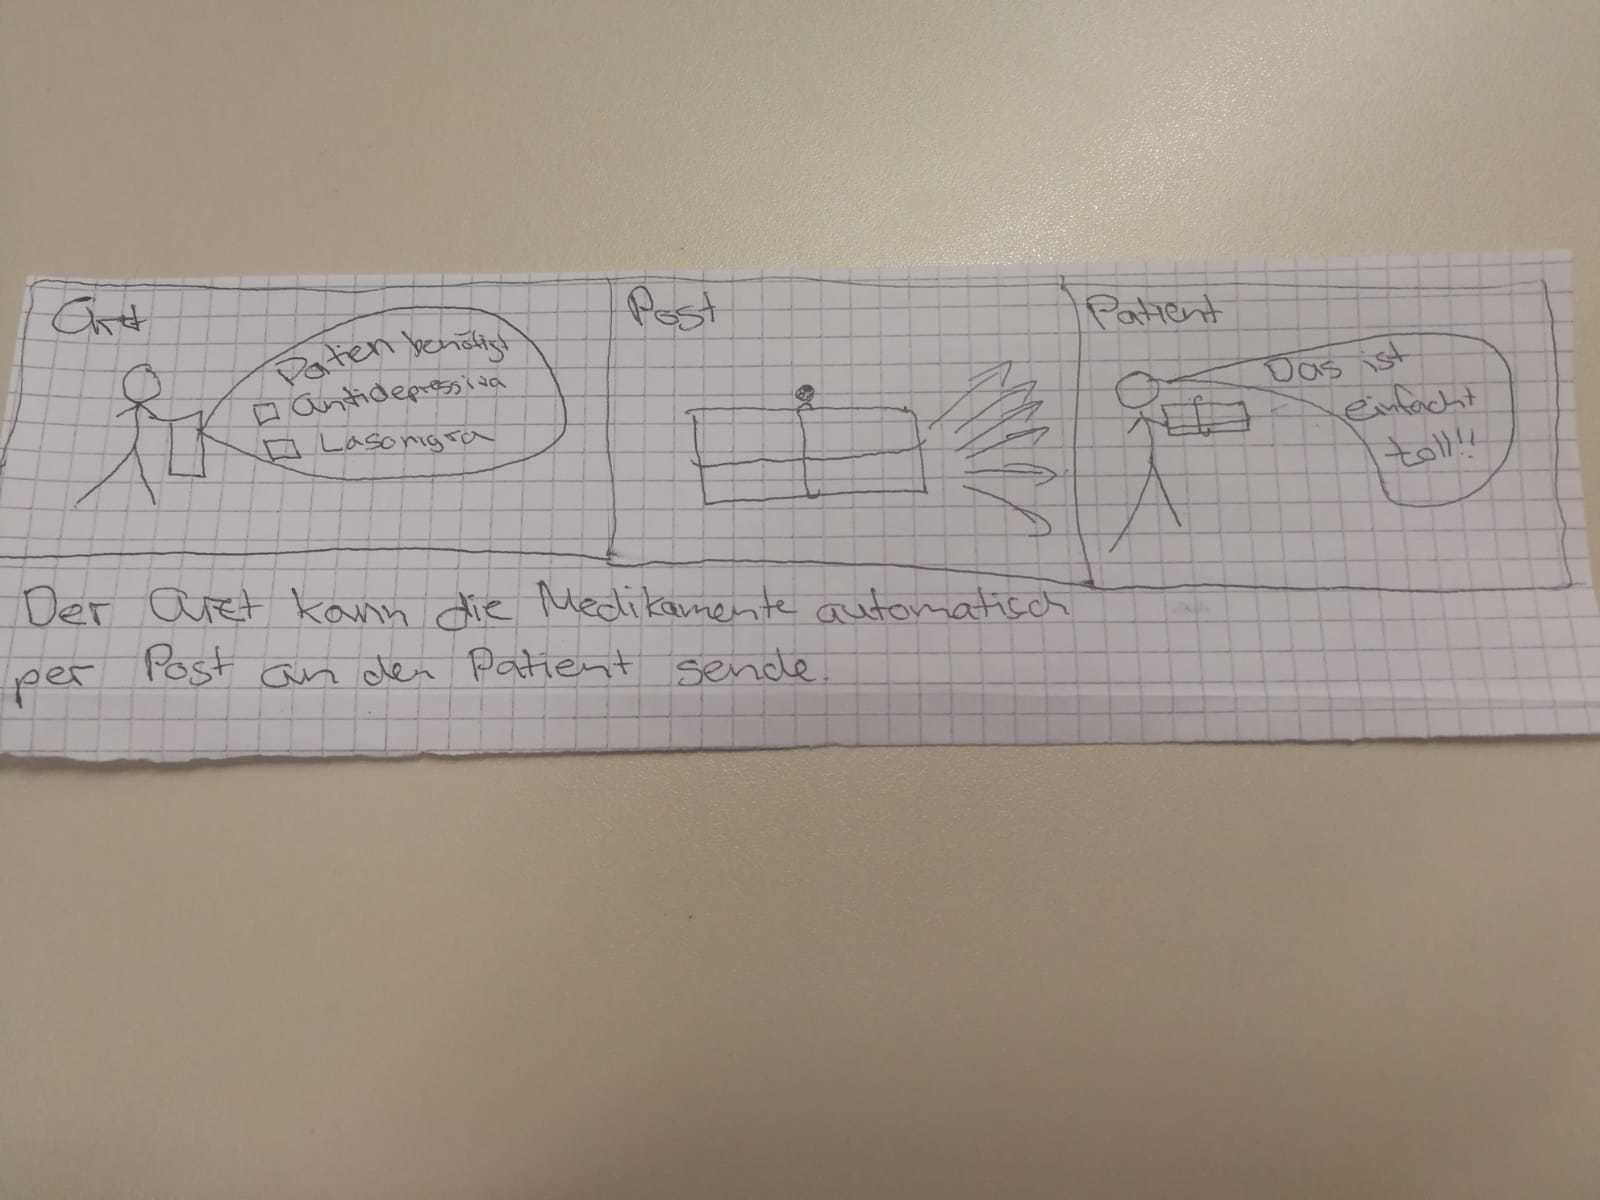 Arzt
Patien benötigt
Antidepressiva
Lasonigra
Post
Patient
Das ist
einfacht
toll!!
Der Arzt kann die Medikamente automatisch
per Post an den Patient sende.